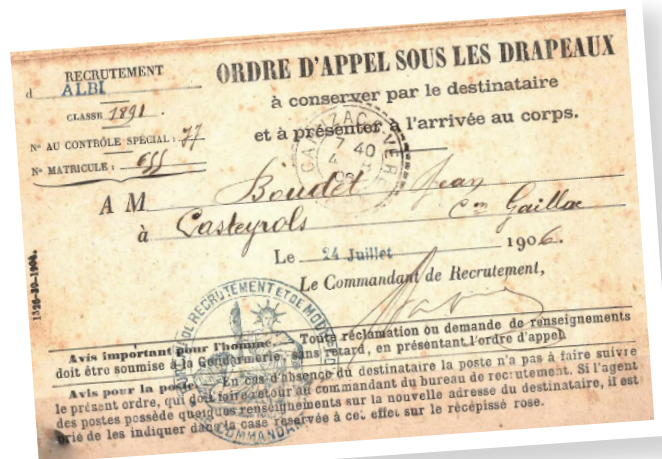 RECRUTEMENT
d ALBI
CLASSE 1891
N° AU CONTRÔLE SPÉCIAL : 77
N° MATRICULE : 655
ORDRE D'APPEL SOUS LES DRAPEAUX
à conserver par le destinataire
et à présenter à l'arrivée au corps.
A M Boudet Jean
à Casteyrols Con Gaillac
Le 24 Juillet 1906.
Le Commandant de Recrutement,
Avis important pour l'homme. Toute réclamation ou demande de renseignements
doit être soumise à la Gendarmerie, sans retard, en présentant l'ordre d'appel
Avis pour la poste. En cas d'absence du destinataire la poste n'a pas à faire suivre
le présent ordre, qui doit faire retour au commandant du bureau de recrutement. Si l'agent
des postes possède quelques renseignements sur la nouvelle adresse du destinataire, il est
prié de les indiquer dans la case réservée à cet effet sur le récépissé rose.